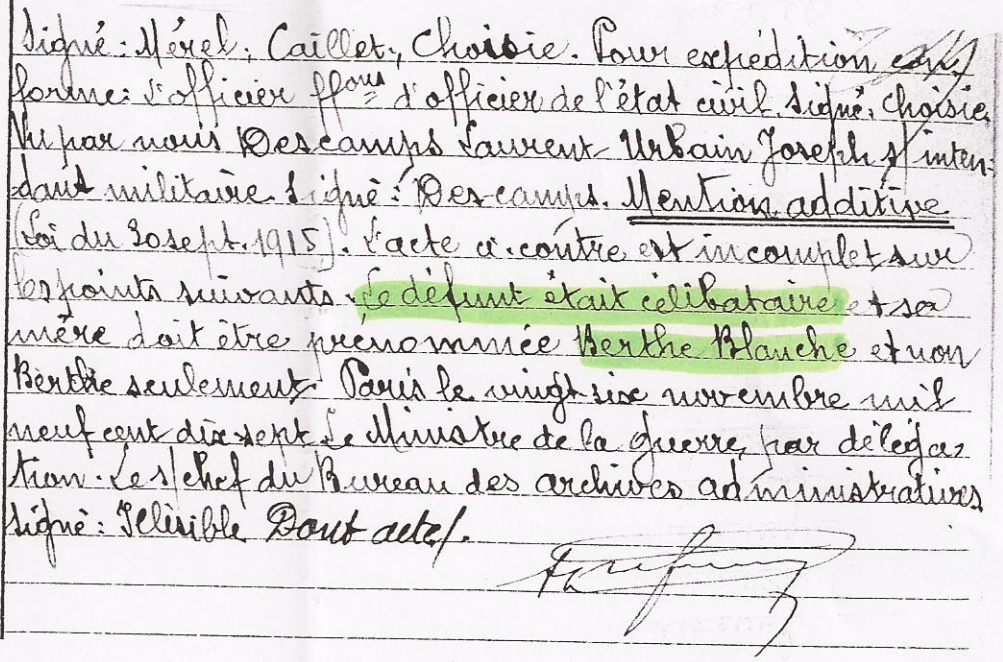 Signé: Mérel, Caillet, Choisie. Pour expédition
forme: L'officier ffons d'officier de l'état civil. Signé, Choisie.
Vu par nous Descamps Laurent Urbain Joseph s/ inten-
dant militaire. Signé: Descamps. Mention additive
(Loi du 30 sept. 1915). L'acte ci-contre est incomplet sur
les points suivants. Le défunt était célibataire et sa
mère doit être prénommée Berthe Blanche et non
Berthe seulement. Paris le vingt six novembre mil
neuf cent dix sept Le Ministre de la guerre, par déléga=
tion. Le s/chef du Bureau des archives administratives
Signé: Illisible Dont acte/.